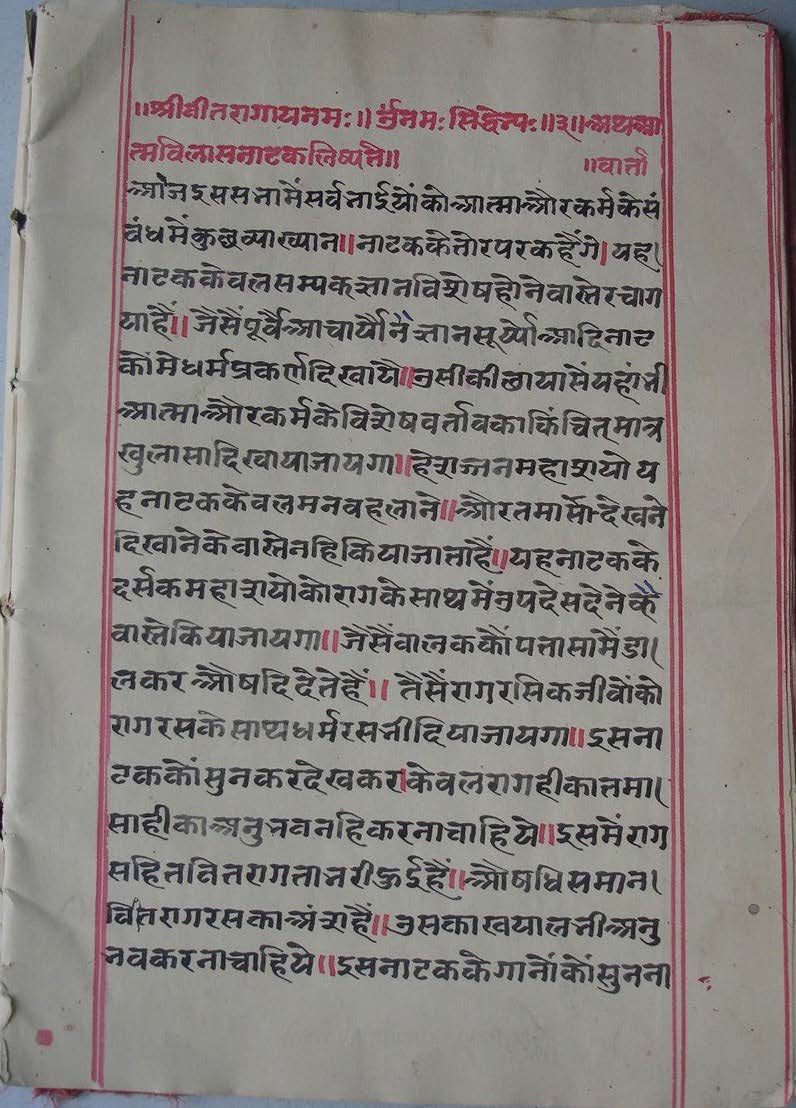 ॥श्रीवीतरागायनमः॥ ॐनमः सिद्धेभ्यः॥३॥ अथआ
त्मविलासनाटकलिष्यते॥ ॥वार्त्ता
ओज इससभामेंसर्वभाईयोंकोआत्माऔरकर्मकेसं
वंधमेंकुछव्याख्यान॥नाटककेतोरपरकहैंगे।यह।
नाटककेवलसम्यकज्ञानविशेषहोनेवास्तेरचाग
याहैं॥ जैसैंपूर्वैआचार्योंनें ज्ञानसूर्य्योआदिनाट
कौंमेधर्मप्रकर्णदिखायै॥उसीकीछायासेंयहांभी
आत्माऔरकर्मकेविशेषवर्तावकाकिंचित्मात्र
खुलासादिखायाजायगा॥हेसज्जनमहाशयोय
हनाटककेवलमनवहलाने॥औरतमासोदेखने
दिखानेकेवास्तेनहिकियाजाताहैं॥यहनाटकके
दर्सकमहाशयोकोरागकेसाथमेंउपदेसदेनेकै
वास्तेकियाजायगा॥जैसैंवालककौंपतासामैंडा।
लकरऔषदिदेतेहैं॥ तैसैंरागरसिकजीवोंको
रागरसकेसाथधर्मरसभीदियाजायगा॥इसना
टककोंसुनकरदेखकर।केवलरागहीकातमा।
साहीकाअनुभवनहिकरनाचाहिये॥इसमेंराग
सहितवितरागताभरीहुईहैं॥औषधिसमान।
वितरागरसकाअंशहैं॥उसकाखयालभीअनु
भवकरनाचाहिये॥इसनाटककेगानोंकोंसुनना